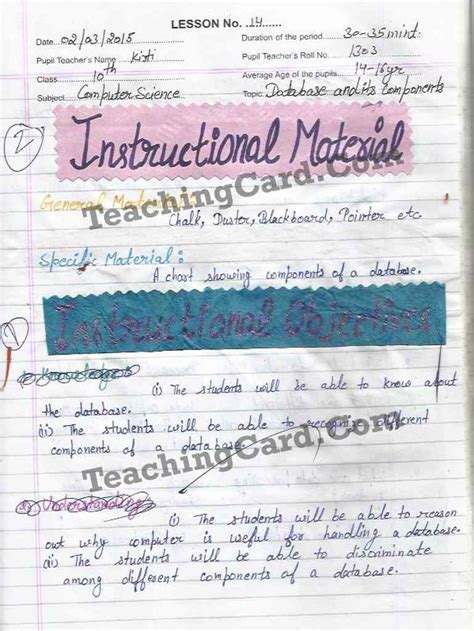 LESSON No. 14
Date 02/03/2015 Duration of the period 30-35mint.
Pupil Teacher's Name Kirti Pupil Teacher's Roll No. 1303
Class 10th Average Age of the pupils 14-16yr
Subject Computer Science Topic Database and its components
2 Instructional Material
General Material:
TeachingCard.Com
Chalk, Duster, Blackboard, Pointer etc
Specific Material:
A chart showing components of a database.
1 Instructional Objectives
1) Knowledge:
(i) The students will be able to know about
the database.
(ii) The students will be able to recognise different
components of a database.
TeachingCard.Com
2) Understanding:
(i) The students will be able to reason
out why computer is useful for handling a database.
(ii) The students will be able to discriminate
among different components of a database.